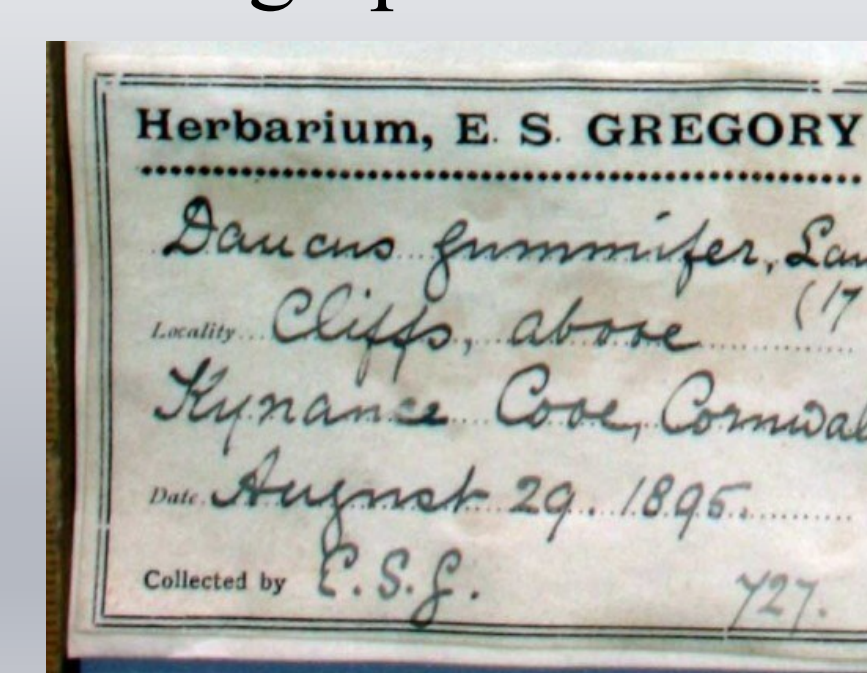 Herbarium, E. S. GREGORY
Daucus gummifer, Lam
(17
Locality Cliffs, above
Kynance Cove, Cornwal
Date August 29. 1895.
Collected by E. S. G. 727.